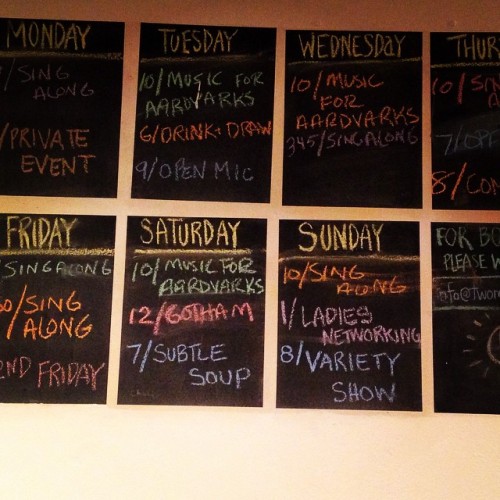 MONDAY
/SING
ALONG
/PRIVATE
EVENT
TUESDAY
10/MUSIC FOR
AARDVARKS
6/DRINK+DRAW
9/OPEN MIC
WEDNESDAY
10/MUSIC
FOR
AARDVARKS
345/SINGALONG
THUR
10/
7/OP
8/CO
FRIDAY
SINGALONG
/SING
ALONG
2ND FRIDAY
SATURDAY
10/MUSIC FOR
AARDVARKS
12/GOTHAM
7/SUBTLE
SOUP
SUNDAY
10/SING
ALONG
1/LADIES
NETWORKING
8/VARIETY
SHOW
FOR BO
PLEASE
info@Twom